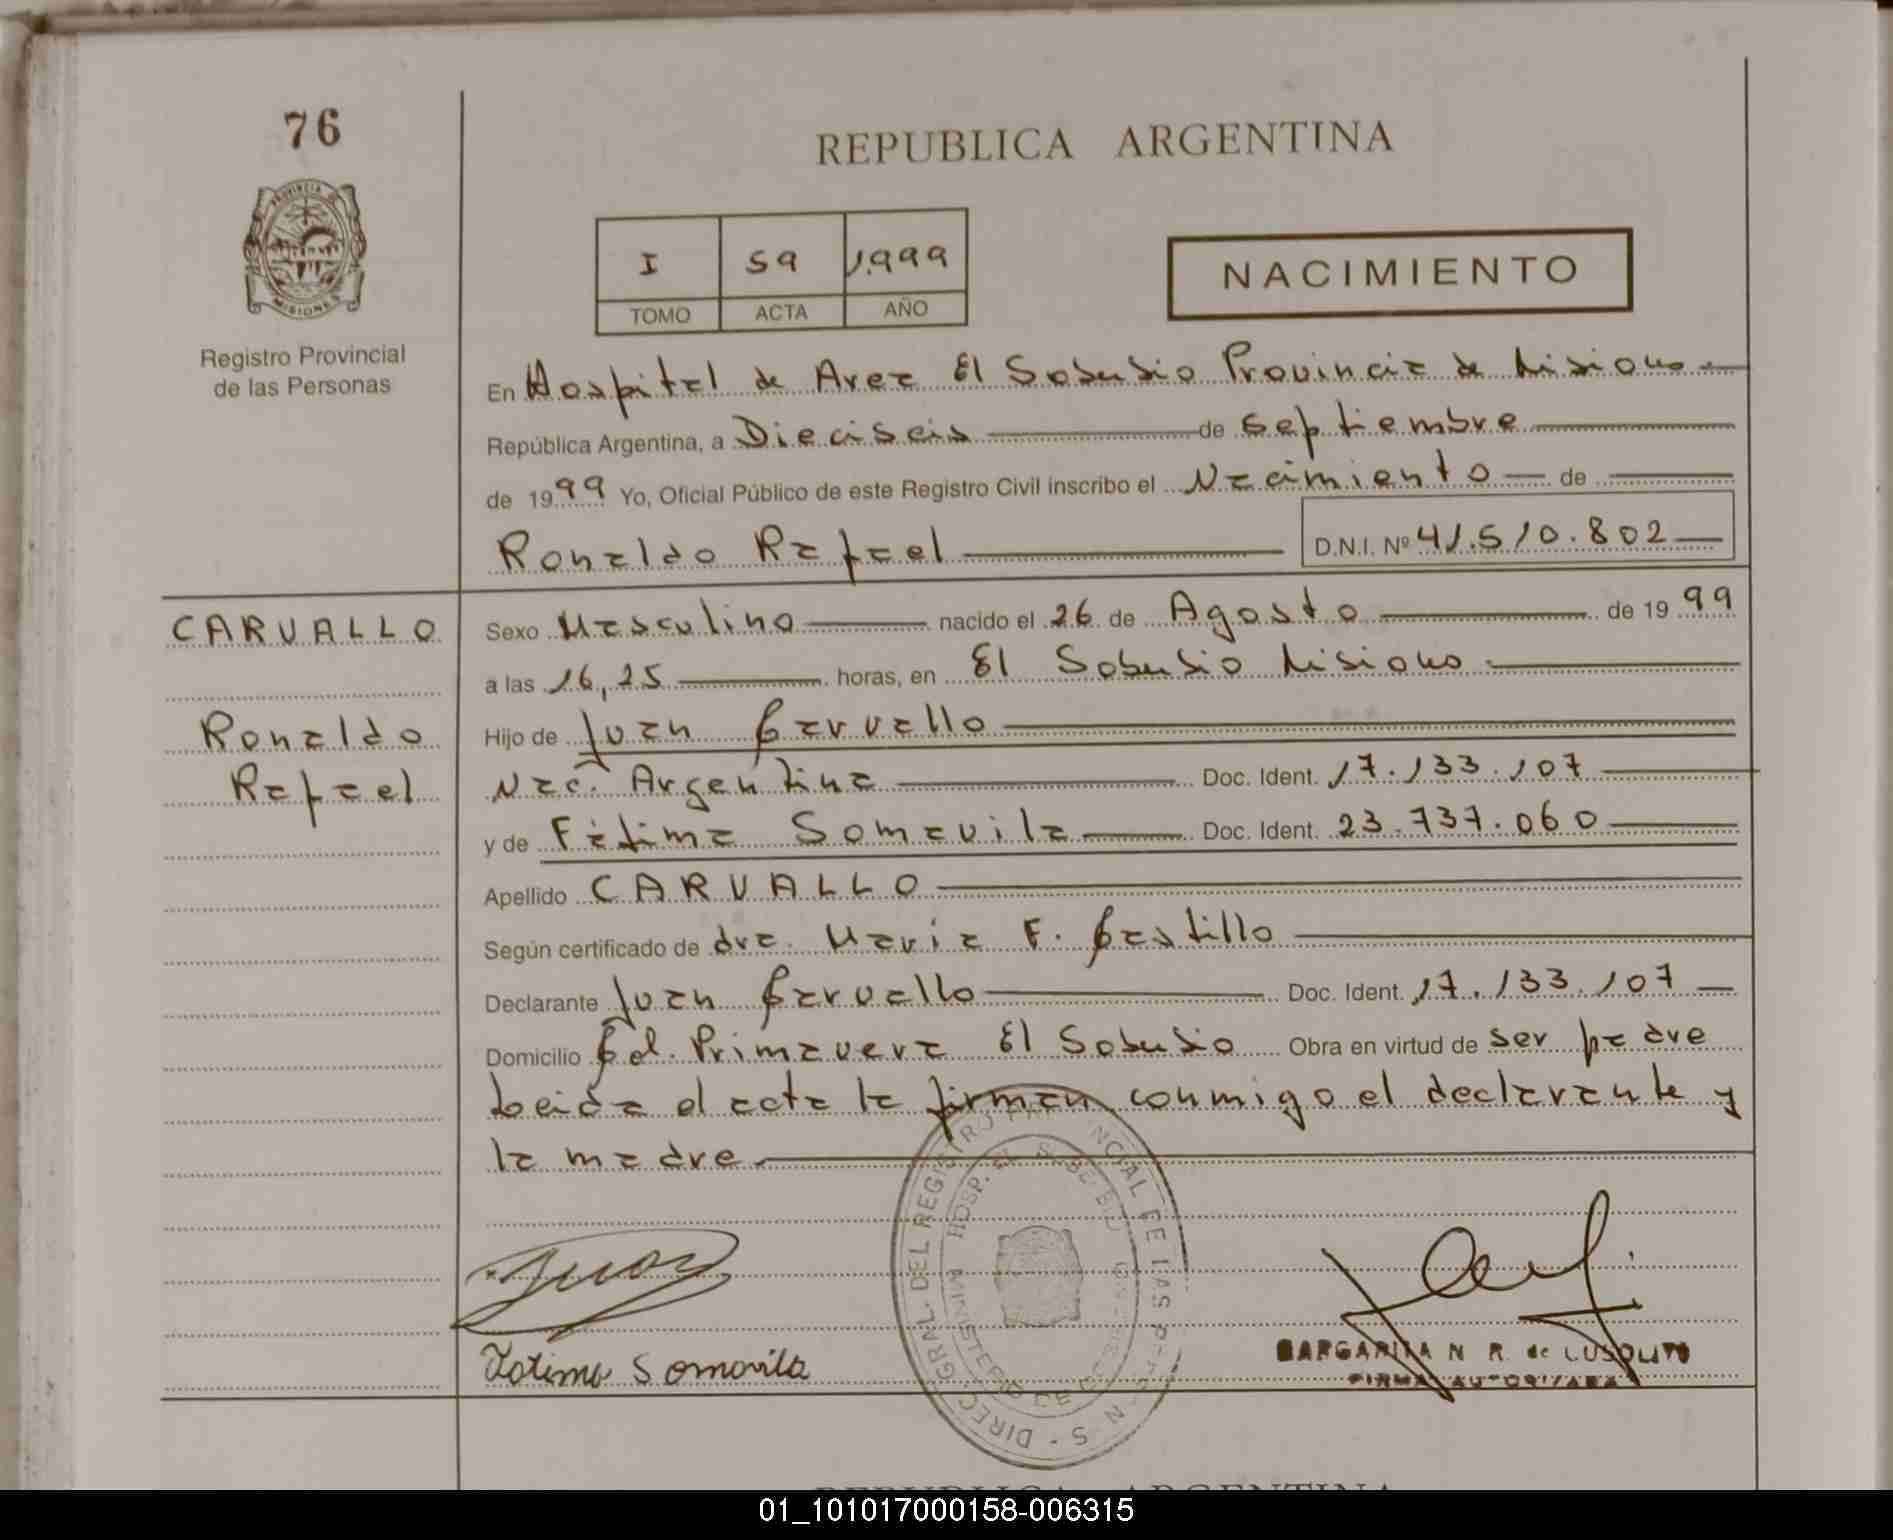 76
PROVINCIA DE
MISIONES
Registro Provincial
de las Personas
REPUBLICA ARGENTINA
I 59 1.999
TOMO ACTA AÑO
NACIMIENTO
En Hospital de Area El Soberbio Provincia de Misiones
República Argentina, a Dieciseis de septiembre
de 1999 Yo, Oficial Público de este Registro Civil inscribo el Nacimiento de
Ronaldo Rafael D.N.I. Nº 41.510.802
CARVALLO
Ronaldo
Rafael
Sexo Masculino nacido el 26 de Agosto de 1999
a las 16,25 horas, en El Soberbio Misiones
Hijo de Juan Carvallo
Nac. Argentina Doc. Ident. 17.133.107
y de Fátima Somavila Doc. Ident. 23.737.060
Apellido CARVALLO
Según certificado de dra. Maria F. Castillo
Declarante Juan Carvallo Doc. Ident. 17.133.107
Domicilio Col. Primavera El Soberbio Obra en virtud de ser padre
Leida el acta la firman conmigo el declarante y
la madre
Juan
Fatima Somavila
DIREC. GRAL. DEL REGISTRO PROVINCIAL DE LAS
HOSP. EL SOBERBIO
MINISTERIO DE
MARGARITA N R. de LUSOLITO
FIRMA AUTORIZADA
REPUBLICA ARGENTINA
01_101017000158-006315